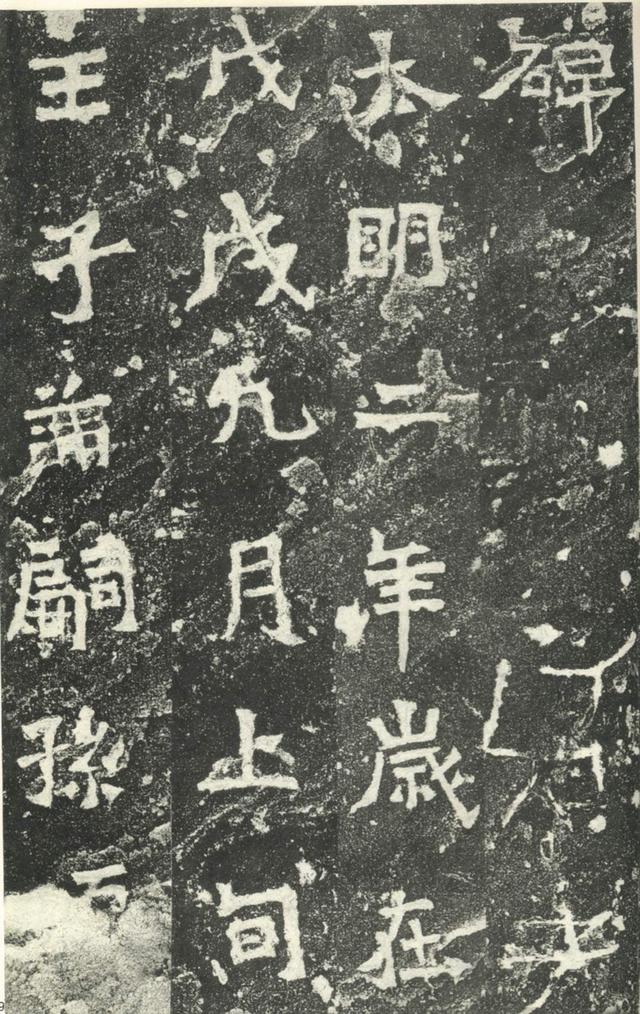 碑
大明二年歲在
戊戌九月上旬
壬子嗣孫